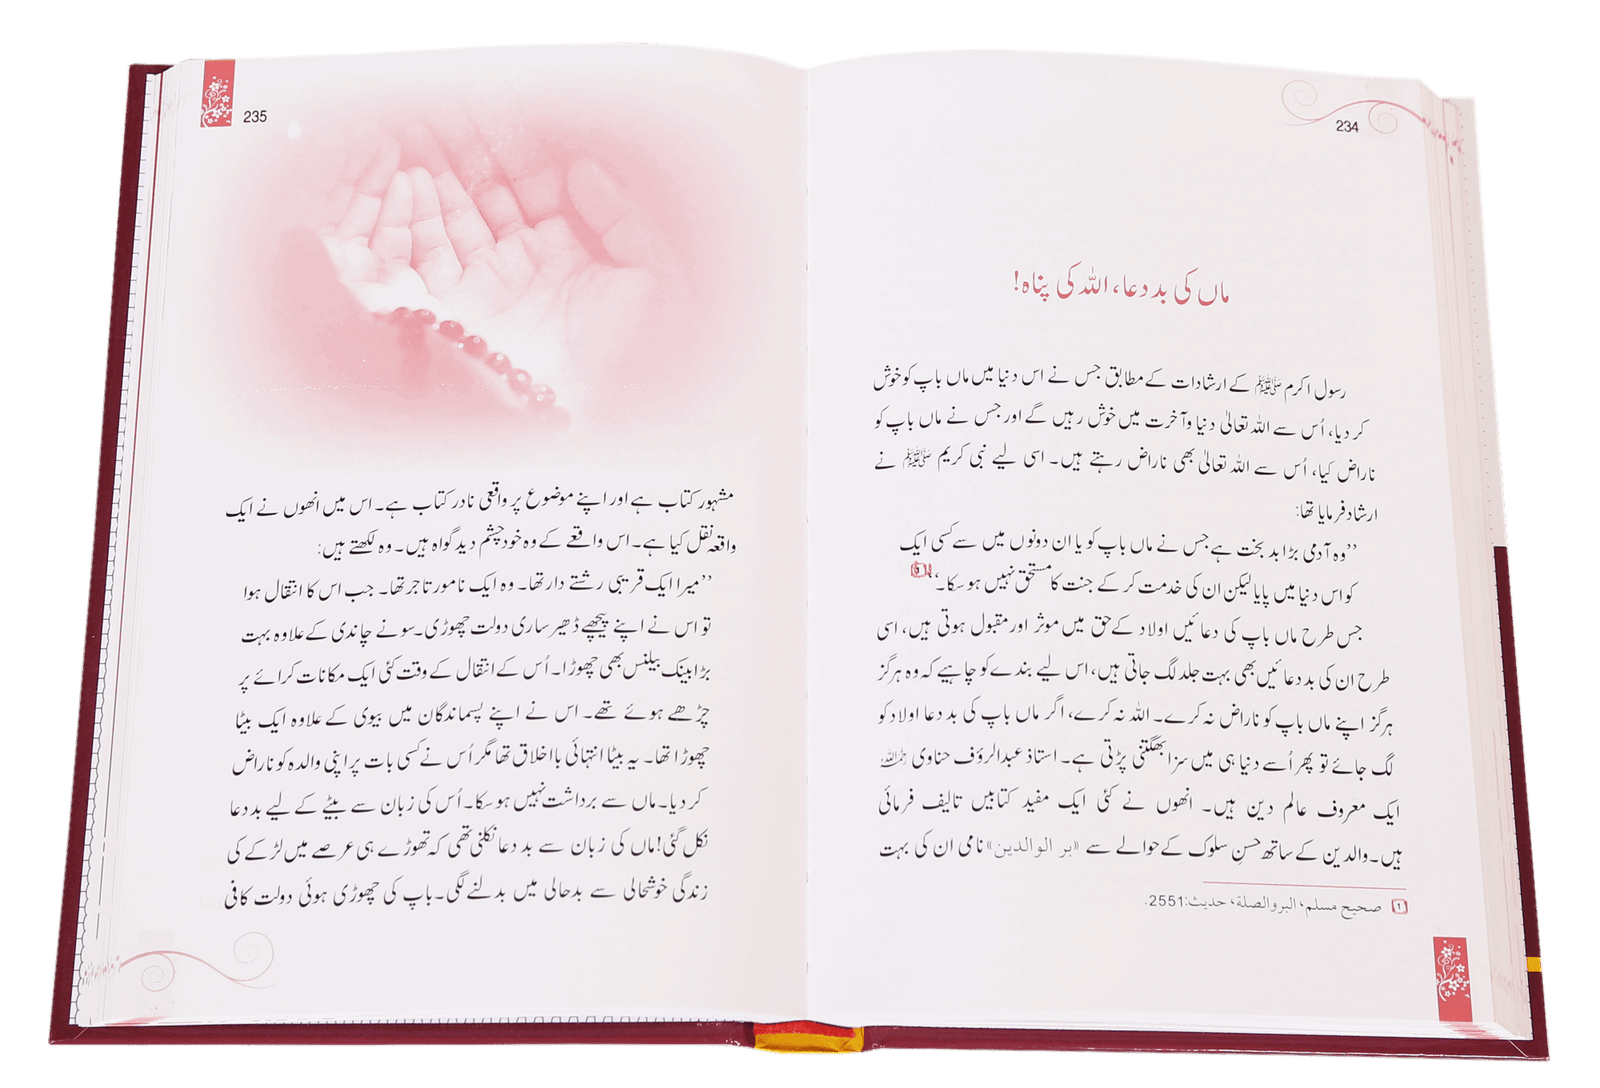 234
ماں کی بددعا، اللہ کی پناہ!
رسول اکرم ﷺ کے ارشادات کے مطابق جس نے اس دنیا میں ماں باپ کو خوش
کر دیا، اُس سے اللہ تعالیٰ دنیا وآخرت میں خوش رہیں گے اور جس نے ماں باپ کو
ناراض کیا، اُس سے اللہ تعالیٰ بھی ناراض رہتے ہیں۔ اسی لیے نبی کریم ﷺ نے
ارشاد فرمایا تھا:
’’وہ آدمی بڑا بد بخت ہے جس نے ماں باپ کو یا ان دونوں میں سے کسی ایک
کو اس دنیا میں پایا لیکن ان کی خدمت کر کے جنت کا مستحق نہیں ہو سکا۔‘‘
جس طرح ماں باپ کی دعائیں اولاد کے حق میں موثر اور مقبول ہوتی ہیں، اسی
طرح ان کی بددعائیں بھی بہت جلد لگ جاتی ہیں، اس لیے بندے کو چاہیے کہ وہ ہرگز
ہرگز اپنے ماں باپ کو ناراض نہ کرے۔ اللہ نہ کرے، اگر ماں باپ کی بددعا اولاد کو
لگ جائے تو پھر اُسے دنیا ہی میں سزا بھگتنی پڑتی ہے۔ استاذ عبدالرؤف حناوی رحمہ اللہ
ایک معروف عالم دین ہیں۔ انھوں نے کئی ایک مفید کتابیں تالیف فرمائی
ہیں۔ والدین کے ساتھ حسنِ سلوک کے حوالے سے «بر الوالدين» نامی ان کی بہت
1 صحيح مسلم، البر والصلة، حديث:2551.
235
مشہور کتاب ہے اور اپنے موضوع پر واقعی نادر کتاب ہے۔ اس میں انھوں نے ایک
واقعہ نقل کیا ہے۔ اس واقعے کے وہ خود چشم دید گواہ ہیں۔ وہ لکھتے ہیں:
’’میرا ایک قریبی رشتے دار تھا۔ وہ ایک نامور تاجر تھا۔ جب اس کا انتقال ہوا
تو اس نے اپنے پیچھے ڈھیر ساری دولت چھوڑی۔ سونے چاندی کے علاوہ بہت
بڑا بینک بیلنس بھی چھوڑا۔ اُس کے انتقال کے وقت کئی ایک مکانات کرائے پر
چڑھے ہوئے تھے۔ اس نے اپنے پسماندگان میں بیوی کے علاوہ ایک بیٹا
چھوڑا تھا۔ یہ بیٹا انتہائی بااخلاق تھا مگر اُس نے کسی بات پر اپنی والدہ کو ناراض
کر دیا۔ ماں سے برداشت نہیں ہو سکا۔ اُس کی زبان سے بیٹے کے لیے بددعا
نکل گئی! ماں کی زبان سے بددعا نکلنی تھی کہ تھوڑے ہی عرصے میں لڑکے کی
زندگی خوشحالی سے بدحالی میں بدلنے لگی۔ باپ کی چھوڑی ہوئی دولت کافی